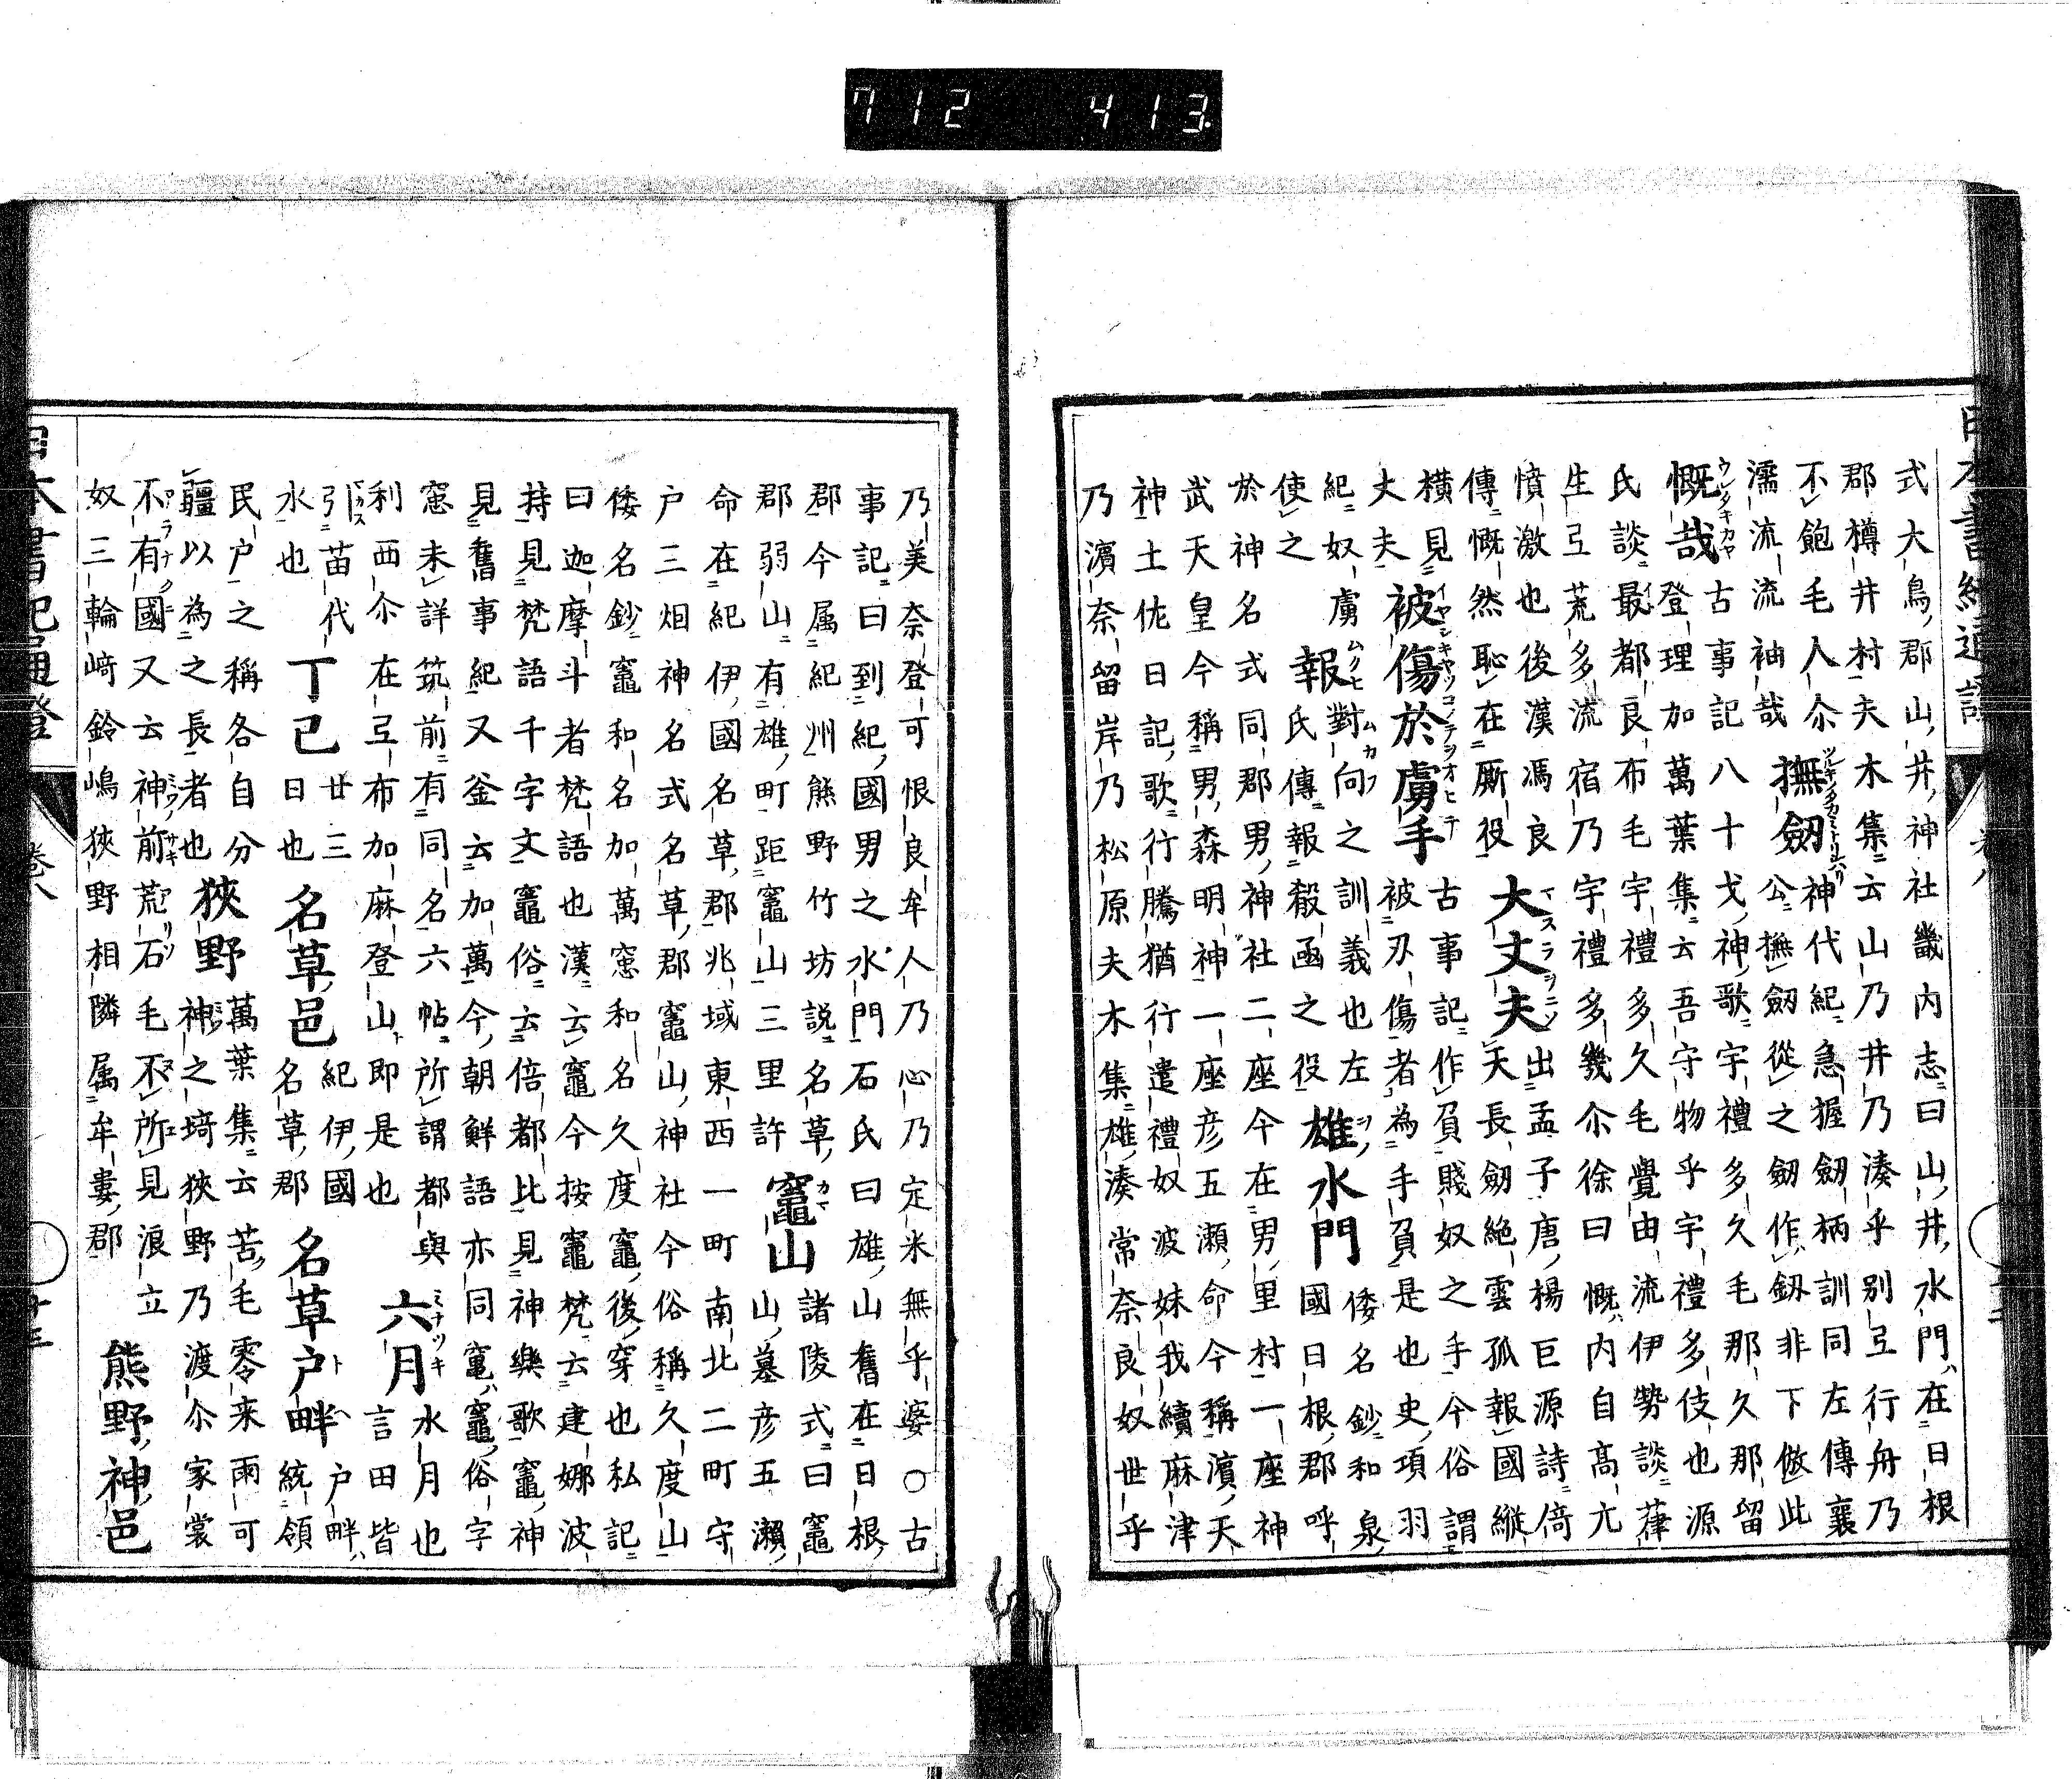 712 413.
式大鳥郡山井神社畿内志曰山井水門在日根
郡樽井村夫木集云山乃井乃湊乎別弖行舟乃
不飽毛人尓 神代紀急握劔柄訓同左傳襄
濡流流袖哉 撫劔 公撫劔從之劔作釼非下倣此
慨哉 古事記八十戈神歌宇禮多久毛那久那留
登理加萬葉集云吾守物乎宇禮多伎也源
氏談最都良布毛宇禮多久毛覺由流伊勢談葎
生弖荒多流宿乃宇禮多幾尓徐曰慨内自高亢
憤激也後漢馮良 大丈夫 出孟子唐楊巨源詩倚
傳慨然恥在厮役 天長劔絶雲孤報國縱
横見 被傷於虜手 古事記作負賤奴之手今俗謂
丈夫 被刃傷者為手負是也史項羽
紀奴虜 報 對向之訓義也左 雄水門 倭名鈔和泉
使之 氏傳報殺凾之役 國日根郡呼
於神名式同郡男神社二座今在男里村一座神
武天皇今稱男森明神一座彦五瀬命今稱濱天
神土佐日記歌行騰猶行遣禮奴波妹我續麻津
乃濱奈留岸乃松原夫木集雄湊常奈良奴世乎
乃美奈登可恨良牟人乃心乃定米無乎婆○古
事記曰到紀國男之水門石氏曰雄山舊在日根
郡今属紀州熊野竹坊説名草 竈山 諸陵式曰竈
郡弱山有雄町距竈山三里許 山墓彦五瀬
命在紀伊國名草郡兆域東西一町南北二町守
戸三烟神名式名草郡竈山神社今俗稱久度山
倭名鈔竈和名加萬窓和名久度竈後穿也私記
曰迦摩斗者梵語也漢云竈今按竈梵云建娜波
持見梵語千字文竈俗云倍都比見神樂歌竈神
見舊事紀又釜云加萬今朝鮮語亦同竃竈俗字
窓未詳筑前有同名六帖所謂都與 六月 水月也
利西尓在弖布加麻登山即是也 言田皆
引苗代 丁巳 廿三 名草邑 紀伊國 名草戸畔 戸畔
水也 日也 名草郡 統領
民戸之稱各自分 狹野 萬葉集云苦毛零来雨可
疆以為之長者也 神之埼狹野乃渡尓家裳
不有國又云神前荒石毛不所見浪立 熊野神邑
奴三輪﨑鈴嶋狹野相隣属牟婁郡